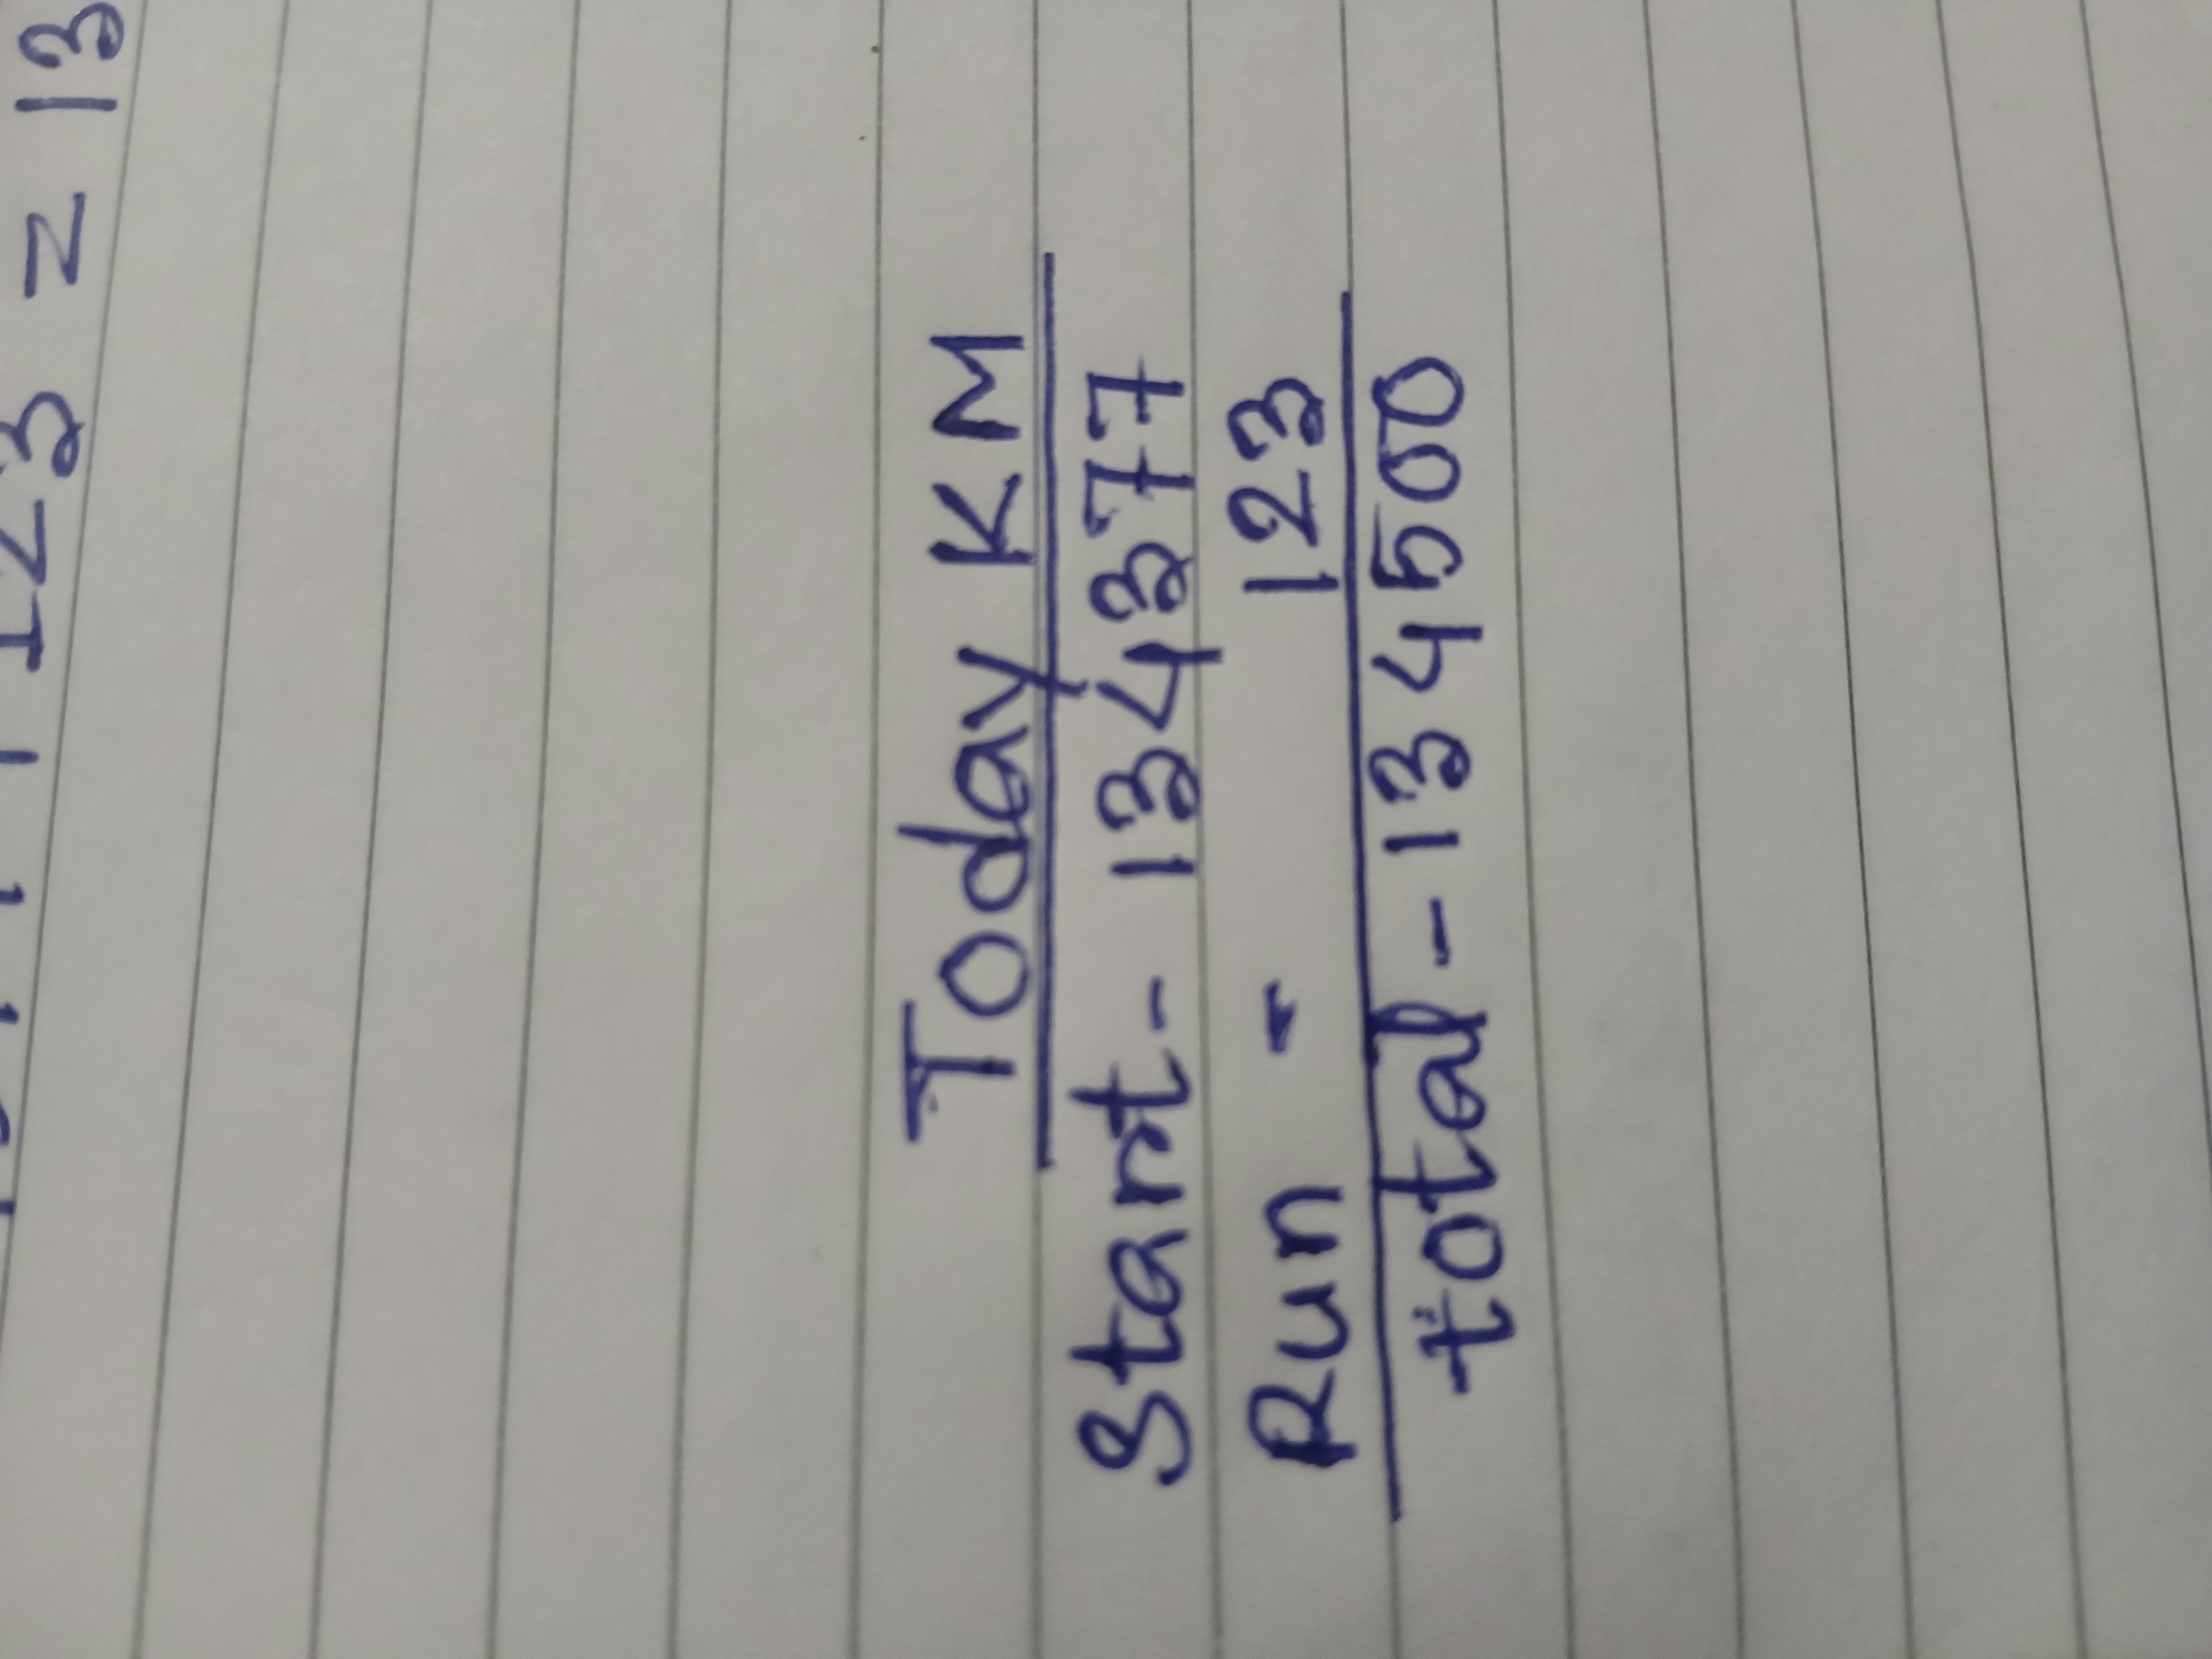 123 = 13
Today KM
Start - 134377
Run - 123
total - 134500